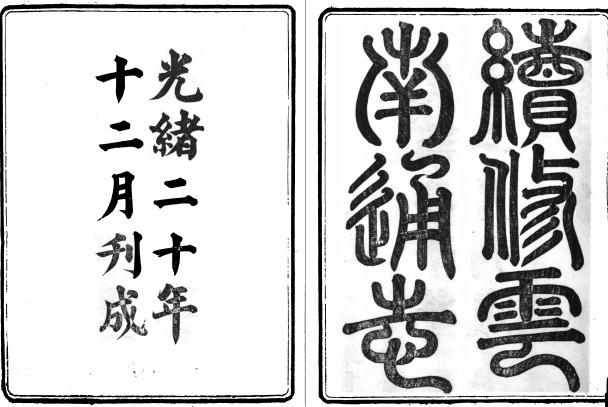 續修雲
南通志
光緒二十年
十二月刋成